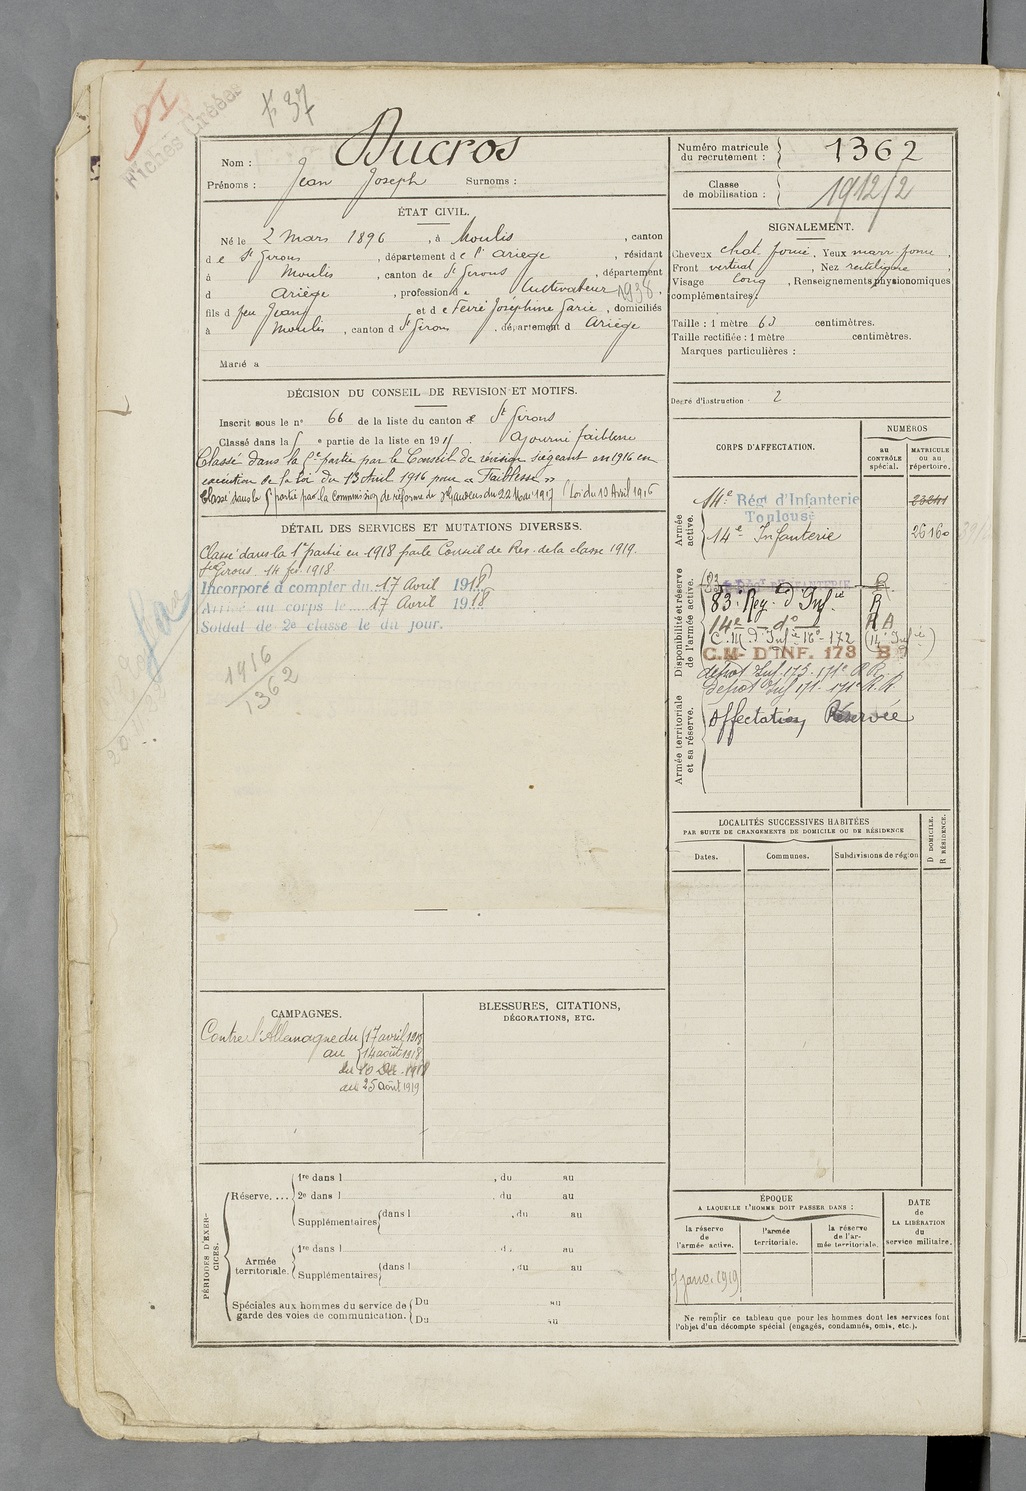 Fiches Créées
Nom : Ducros
Prénoms : Jean Joseph Surnoms :
Numéro matricule
du recrutement : 1362
Classe
de mobilisation : 1912/2
ÉTAT CIVIL.
Né le 2 mars 1896 , à Moulis , canton
de St Girons , département de l'Ariège , résidant
à Moulis , canton de St Girons , département
d Ariège , profession de Cultivateur 1938.
fils d feu Jean et de Fevié Joséphine Marie , domiciliés
à Moulis , canton d St Girons , département d Ariège
Marié à
SIGNALEMENT.
Cheveux chat. foncé , Yeux marr. foncé ,
Front vertical , Nez rectiligne ,
Visage long , Renseignements physionomiques
complémentaires :
Taille : 1 mètre 63 centimètres.
Taille rectifiée : 1 mètre centimètres.
Marques particulières :
Degré d'instruction : 2
DÉCISION DU CONSEIL DE REVISION ET MOTIFS.
Inscrit sous le n° 66 de la liste du canton de St Girons
Classé dans la 5e partie de la liste en 1915. Ajourné faiblesse
Classé dans la 5e partie par le Conseil de révision siégeant en 1916 en
exécution de la loi du 13 Avril 1916 pour « Faiblesse »
Classé dans la 5e partie par la Commission de réforme de St Gaudens du 22 Mai 1917 (Loi du 10 Avril 1916
DÉTAIL DES SERVICES ET MUTATIONS DIVERSES.
Classé dans la 1e partie en 1918 par le Conseil de Rev. de la classe 1919.
St Girons 14 fév. 1918.
Incorporé à compter du 17 Avril 1918
Arrivé au corps le 17 Avril 1918
Soldat de 2e classe le dit jour.
1916
1362
CORPS D'AFFECTATION.
NUMÉROS
au
CONTRÔLE
spécial.
MATRICULE
ou au
répertoire.
Armée
active.
14e Régt d'Infanterie
Toulouse
14e Infanterie 26160
Disponibilité et réserve
de l'armée active.
83e Reg. d'Infie R
14e — do — RA
C. M. d'Infie 16e - 172 (14e Infie)
C.M- D'INF. 173 B
dépôt Inf. 173 - 171e R.R.
Dépôt Inf 171 - 171e R.R.
Armée territoriale
et sa réserve.
Affectation Réservée
LOCALITÉS SUCCESSIVES HABITÉES
PAR SUITE DE CHANGEMENTS DE DOMICILE OU DE RÉSIDENCE
Dates.
Communes.
Subdivisions de région
D DOMICILE.
R RÉSIDENCE.
CAMPAGNES.
Contre l'Allemagne du 17 avril 1918
au 14 août 1918
du 10 Déc. 1918
au 25 Août 1919
BLESSURES, CITATIONS,
DÉCORATIONS, ETC.
PÉRIODES D'EXER-
CICES.
Réserve....
1re dans l , du au
2e dans l , du au
Supplémentaires dans l , du au
Armée
territoriale.
1re dans l , du au
Supplémentaires dans l , du au
Spéciales aux hommes du service de
garde des voies de communication.
Du au
Du au
ÉPOQUE
A LAQUELLE L'HOMME DOIT PASSER DANS :
la réserve
de
l'armée active.
l'armée
territoriale.
la réserve
de l'ar-
mée territoriale.
DATE
de
LA LIBÉRATION
du
service militaire.
7 janv. 1919
Ne remplir ce tableau que pour les hommes dont les services font
l'objet d'un décompte spécial (engagés, condamnés, omis, etc.).